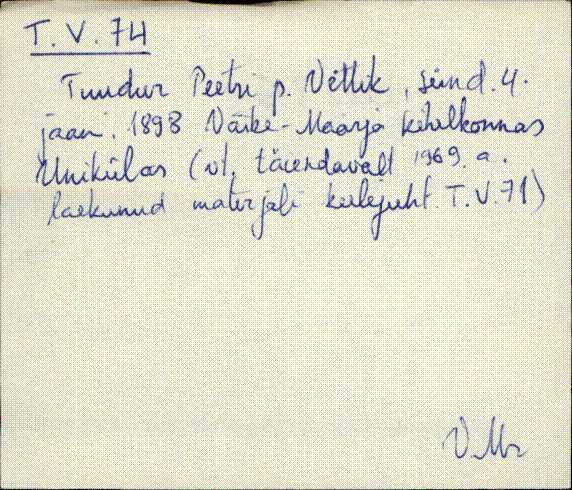 T. V. 74
Tuudur Peetri p. Vettik, sünd. 4.
jaan. 1898 Väike-Maarja kihelkonnas
Uniküla​s (vt. täiendavalt 1969. a.
laekunud materjali keelejuht. T. V. 71)
V. Mr